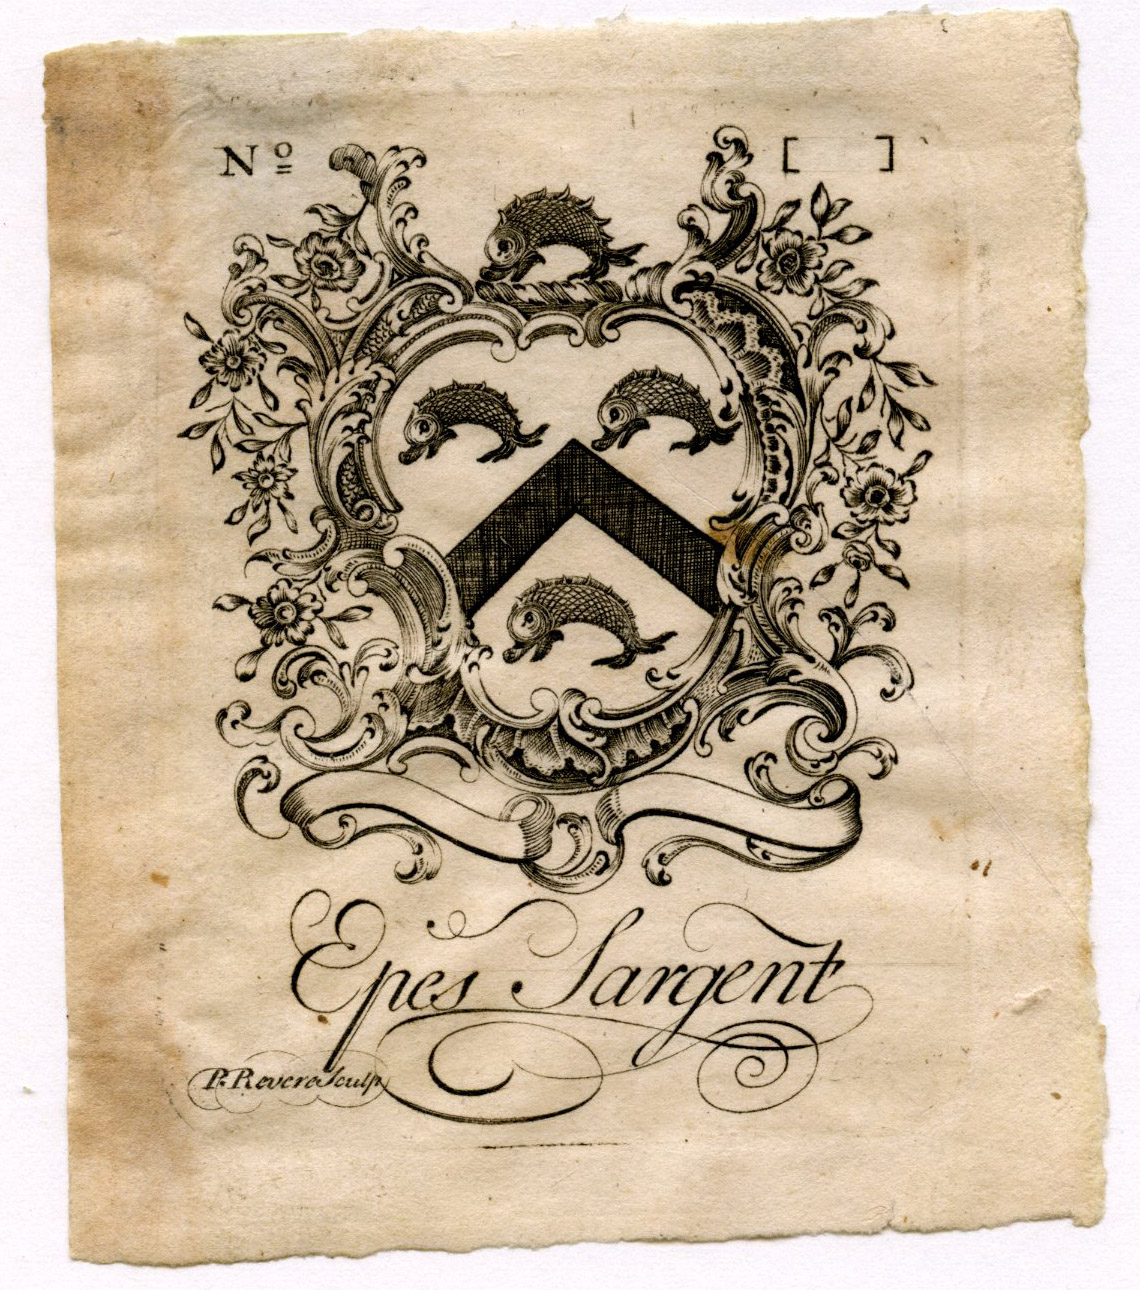 Nº [ ]
Epes Sargent
P. Revere Sculp